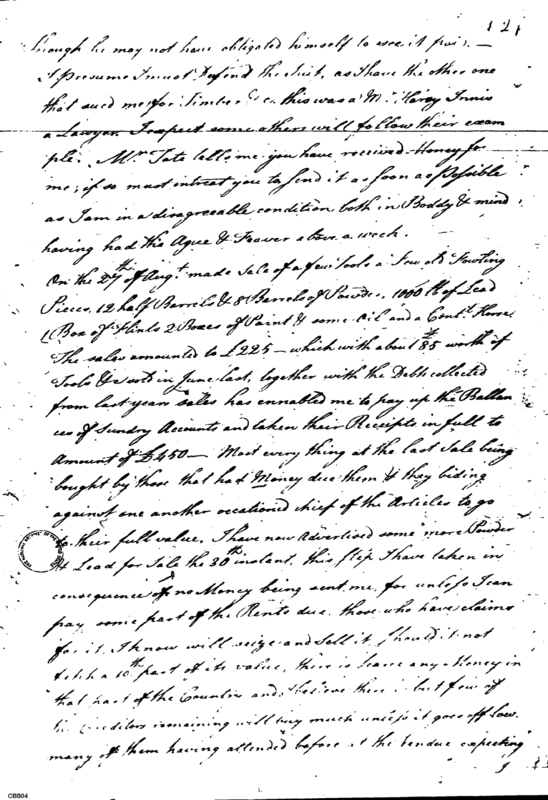 121
though he may not have obligated himself to see it paid. —
I presume I must Defend the Suit, as I have the other one
that sued me for Timber &ca this was a Mr. Harry Innis
a Lawyer. I expect some others will follow their exam
ple. Mr Tate tells me you have received Money for
me; if so must intreat you to send it as soon as possible
as I am in a disagreeable condition both in Boddy & mind
having had the Ague & Feaver above a week.
On the 27th of Augt made Sale of a few Tools a few old Fowling
Pieces, 12 half Barrels & 8 Barrels of Powder, 1000 lb of Lead
1 Box of Flints 2 Boxes of Paint & some Oil and a Contl. Horse
The sales amounted to £225 — which with about £85 worth of
Tools & sold in June last, together with the Debts collected
from last years sales has ennabled me to pay up the Ballan
ces of Sundry Accounts and taken their Receipts in full to
Amount of £450 — Most every thing at the last Sale being
bought by those that had Money due them & they biding
against one another occationed chief of the Articles to go
to their full value. I have now Advertised some more Powder
& Lead for Sale the 30th instant, this step I have taken in
consequence of no Money being sent me, for unless I can
pay some part of the Rents due, those who have claims
for it, I know will seize and Sell it, should it not
fetch a 10th part of its value, there is scarce any Money in
that part of the Country and I believe there is but few of
the creditors remaining will buy much unless it goes off low.
many of them having attended before at the Vendue expecting
CBB04